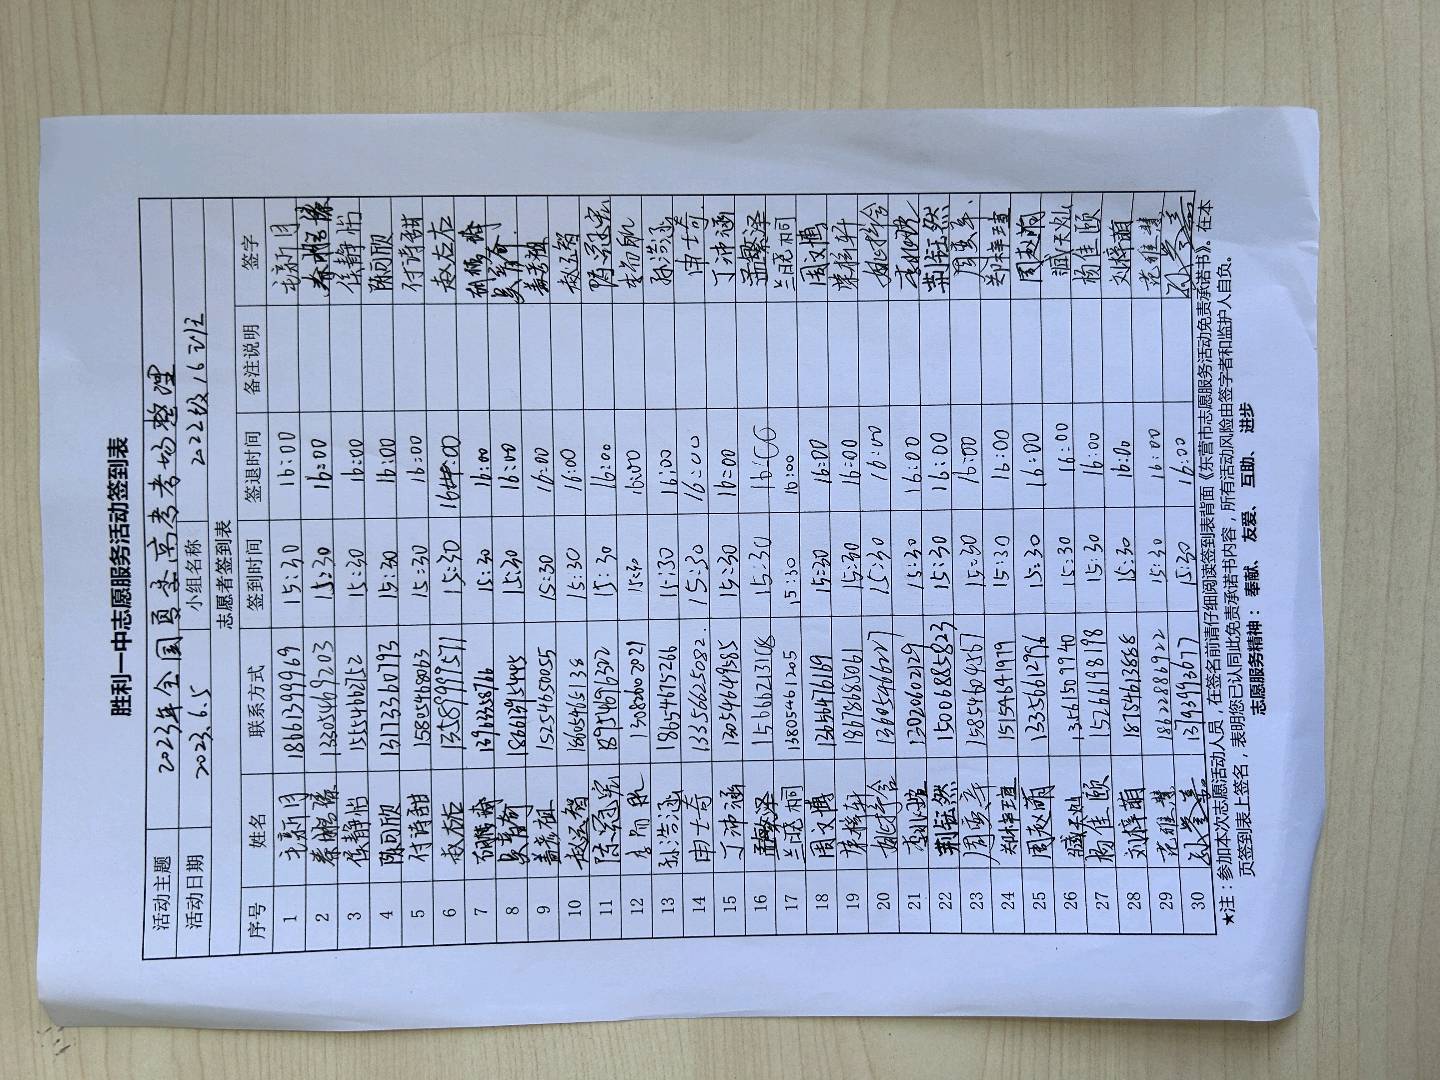 胜利一中志愿服务活动签到表
活动主题 2023年全国夏季高考考场整理
活动日期 2023.6.5 小组名称 2022级16班
志愿者签到表
序号 姓名 联系方式 签到时间 签退时间 备注说明 签字
1 18661399969 15:30 16:00
2 13305469203 15:30 16:00
3 侯静怡 15554666252 15:30 16:00 侯静怡
4 陈可欣 13173360793 15:30 16:00 陈可欣
5 付诗甜 15805468063 15:30 16:00 付诗甜
6 赵左右 13589991571 15:30 16:00 赵左右
7 13963358766 15:30 16:00
8 18661395445 15:30 16:00
9 15254650055 15:30 16:00
10 赵丞智 18605465138 15:30 16:00 赵丞智
11 陈冠宏 15:30 16:00 陈冠宏
12 13082603021 15:30 16:00
13 孙浩涵 18654675266 15:30 16:00 孙浩涵
14 申士奇 13356625082 15:30 16:00 申士奇
15 丁沛涵 13054649585 15:30 16:00 丁沛涵
16 孟繁泽 15666213108 15:30 16:00 孟繁泽
17 兰晓桐 13805461205 15:30 16:00 兰晓桐
18 周文博 13654676169 15:30 16:00 周文博
19 18678685061 15:30 16:00
20 姚抒含 13605466027 15:30 16:00 姚抒含
21 13020602129 15:30 16:00
22 荆钰然 15006885823 15:30 16:00 荆钰然
23 周奕辛 15854604567 15:30 16:00 周奕辛
24 郑梓瑄 15154641979 15:30 16:00 郑梓瑄
25 周赵萌 13356612996 15:30 16:00 周赵萌
26 臧天灿 13561509940 15:30 16:00 臧天灿
27 杨佳颐 15266198198 15:30 16:00 杨佳颐
28 刘梓萌 18754613888 15:30 16:00 刘梓萌
29 范雅慧 18622886922 15:30 16:00 范雅慧
30 13793993677 15:30 16:00
★注：参加本次志愿活动人员，在签名前请仔细阅读签到表背面《东营市志愿服务活动免责承诺书》。在本
页签到表上签名，表明您已认同此免责承诺书内容，所有活动风险由签字者和监护人自负。
志愿服务精神： 奉献、 友爱、 互助、 进步